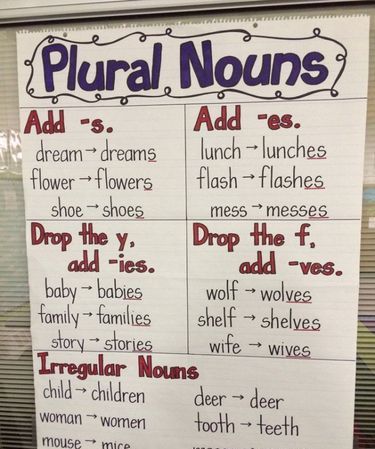 Plural Nouns
Add -s.
dream → dreams
flower → flowers
shoe → shoes
Add -es.
lunch → lunches
flash → flashes
mess → messes
Drop the y,
add -ies.
baby → babies
family → families
story → stories
Drop the f,
add -ves.
wolf → wolves
shelf → shelves
wife → wives
Irregular Nouns
child → children
woman → women
mouse → mice
deer → deer
tooth → teeth